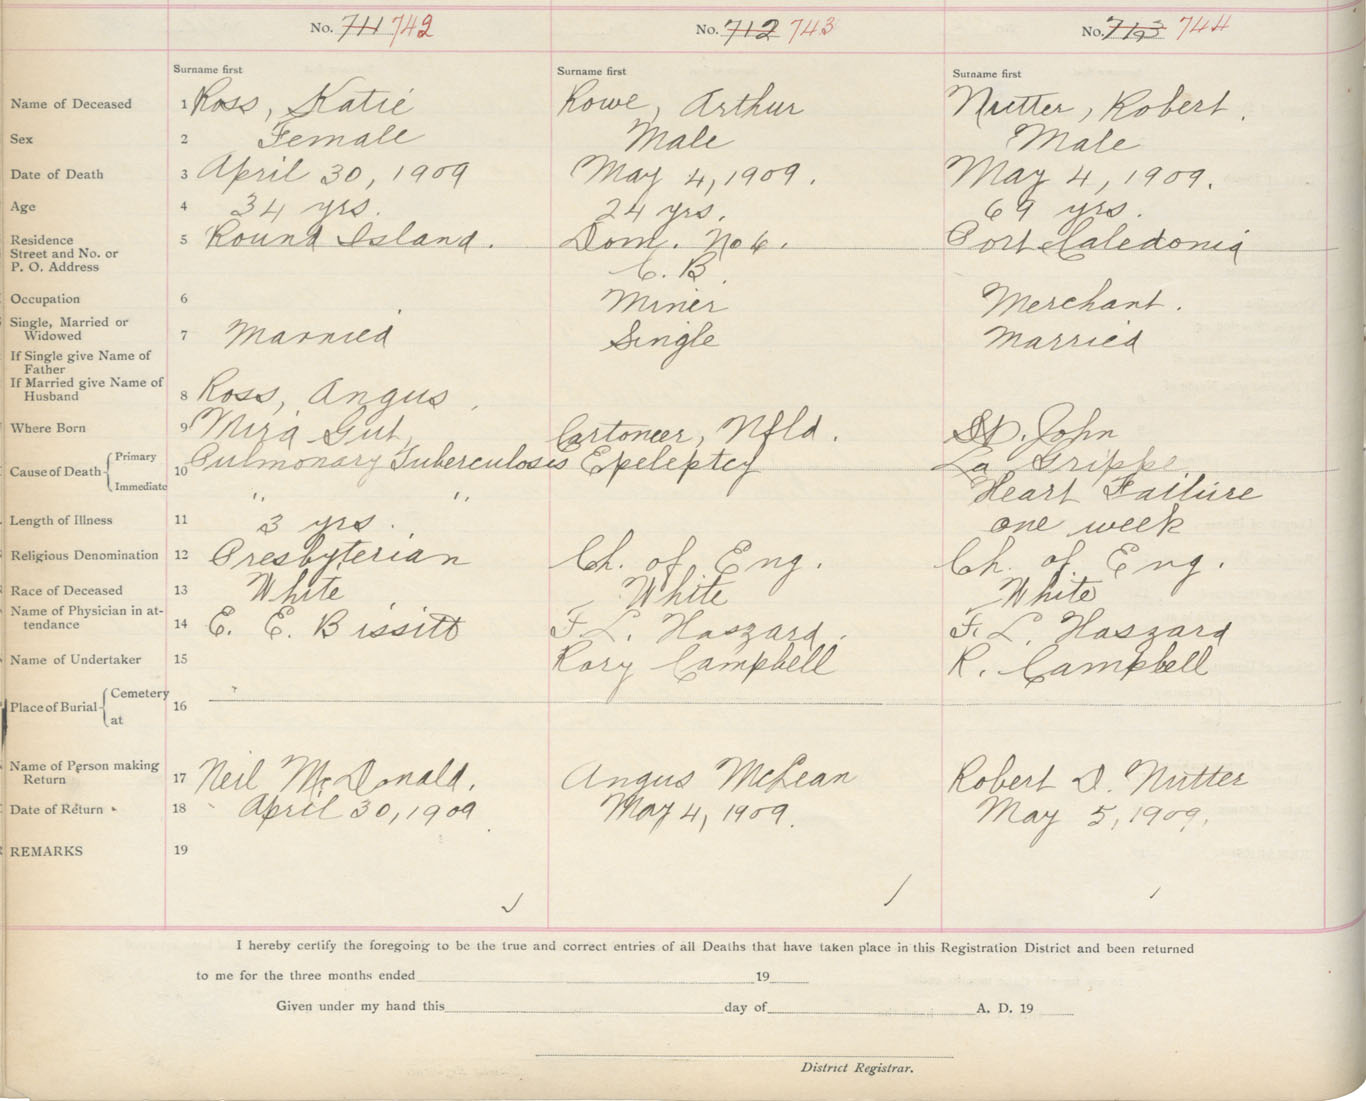 No. 711 742 No. 712 743 No. 713 744
Surname first Surname first Surname first
Name of Deceased 1 Ross, Katie Rowe, Arthur Nutter, Robert.
Sex 2 Female Male Male
Date of Death 3 April 30, 1909 May 4, 1909. May 4, 1909.
Age 4 34 yrs. 24 yrs. 69 yrs.
Residence 5 Round Island. Dom. No 6. Port Caledonia
Street and No. or
P. O. Address C. B.
Occupation 6 Miner Merchant.
Single, Married or
Widowed 7 Married Single Married
If Single give Name of
Father
If Married give Name of
Husband 8 Ross, Angus,
Where Born 9 Mira Gut, Cartoneer, Nfld. St. John
Primary
Cause of Death 10 Pulmonary Tuberculosis Epeleptcy La Grippe
Immediate " " Heart Failure
Length of Illness 11 3 yrs. one week
Religious Denomination 12 Presbyterian Ch. of Eng. Ch. of Eng.
Race of Deceased 13 White White White
Name of Physician in at-
tendance 14 E. E. Bissitt F. L. Haszard. F. L. Haszard
Name of Undertaker 15 Rory Campbell R. Campbell
Cemetery
Place of Burial 16
at
Name of Person making
Return 17 Neil McDonald. Angus McLean Robert D. Nutter
Date of Return 18 April 30, 1909 May 4, 1909. May 5, 1909.
REMARKS 19
I hereby certify the foregoing to be the true and correct entries of all Deaths that have taken place in this Registration District and been returned
to me for the three months ended 19
Given under my hand this day of A. D. 19
District Registrar.